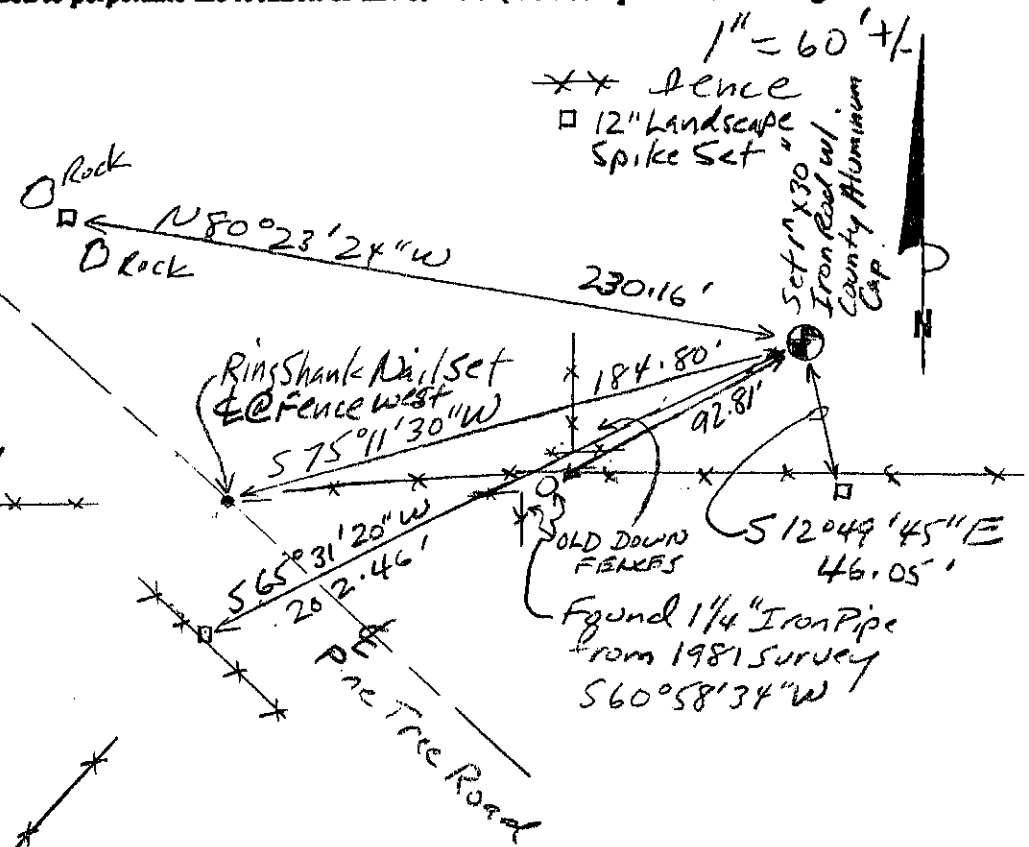 1" = 60' +/-
fence
12" Landscape
Spike Set
Set 1" x 30"
Iron Rod w/
County Aluminum
Cap.
N
Rock
Rock
N 80°23'24" W
230.16'
Ring Shank Nail Set
℄ @ Fence West
S 75°11'30" W
184.80'
92.81'
S 65°31'20" W
202.46'
OLD DOWN
FENCES
S 12°49'45" E
46.05'
Found 1 1/4" Iron Pipe
from 1981 Survey
S 60°58'34" W
℄
Pine Tree Road